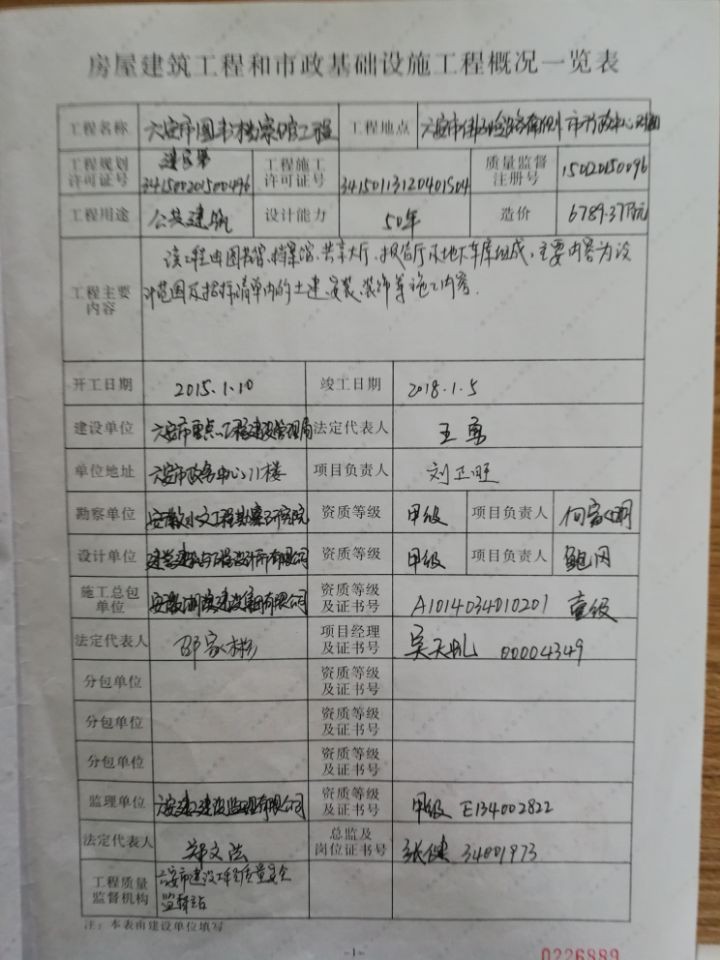 房屋建筑工程和市政基础设施工程概况一览表
工程名称 六安市图书档案馆工程 工程地点 六安市
工程规划许可证号 建字第341500201500496 工程施工许可证号 34150113120401504 质量监督注册号 15020150096
工程用途 公共建筑 设计能力 50年 造价 6789.37万元
工程主要内容 该工程由图书馆、档案馆、共享大厅、报告厅及地下车库组成,主要内容为设
计范围及招标清单内的土建、安装、装饰等施工内容.
开工日期 2015.1.10 竣工日期 2018.1.5
建设单位 六安市重点工程建设管理局 法定代表人 王勇
单位地址 六安市政务中心 11楼 项目负责人 刘正旺
勘察单位 安徽水文工程勘察研究院 资质等级 甲级 项目负责人 何
设计单位 设计所有限公司 资质等级 甲级 项目负责人 鲍
施工总包单位 安徽湖滨建设集团有限公司 资质等级及证书号 A1014034010201 壹级
法定代表人 邵家 项目经理及证书号 吴天 00004349
分包单位 资质等级及证书号
分包单位 资质等级及证书号
分包单位 资质等级及证书号
监理单位 六安建工建设监理有限公司 资质等级及证书号 甲级 E134002822
法定代表人 郑文法 总监及岗位证书号 张健 34001973
工程质量监督机构 六安市建设工程质量安全
监督站
注:本表由建设单位填写
-1-
0226889